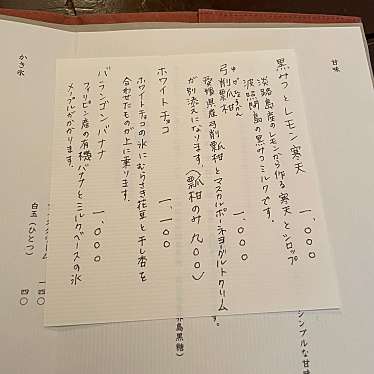 甘味
黒みつとレモン寒天 一、〇〇〇
淡路島産のレモンから作る寒天とシロップ
波照間島の黒みつミルクです。
弓削瓢柑 一、〇〇〇
愛媛県産弓削瓢柑とマスカルポーネヨーグルトクリーム
が別添えになります。(瓢柑のみ 九〇〇)
ホワイトチョコ 一、一〇〇
ホワイトチョコの氷にむらさき花豆と干し杏を
合わせたものが上に乗ります。
バランゴンバナナ 一、〇〇〇
フィリピン産の有機バナナとミルクベースの氷
メープルがかかります。
シンプルな甘味
島黒糖)
す。
かき氷
クリーム 一四〇
白玉(ひとつ) 四〇